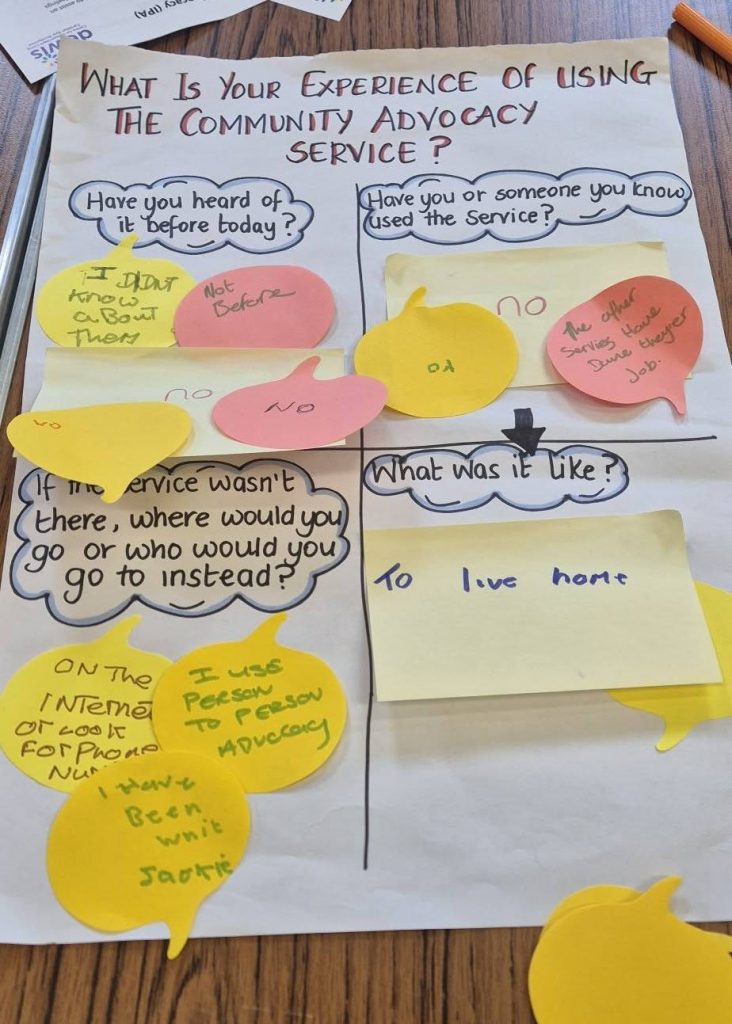 ocacy (IPA)
WHAT IS YOUR EXPERIENCE OF USING
THE COMMUNITY ADVOCACY
SERVICE?
Have you heard of
it before today?
I DIDNT
Know
aBout
Them
Not
Before
no
NO
Have you or someone you know
used the Service?
no
The other
Servies Have
Dune theyer
Job.
If the service wasn't
there, where would you
go or who would you
go to instead?
ON The
INTerneT
Or LOOK
FOr PHone
I USE
PERSON
TO PERSON
ADVOCACY
I Have
Been
whit
Jackie
What was it like?
To live home